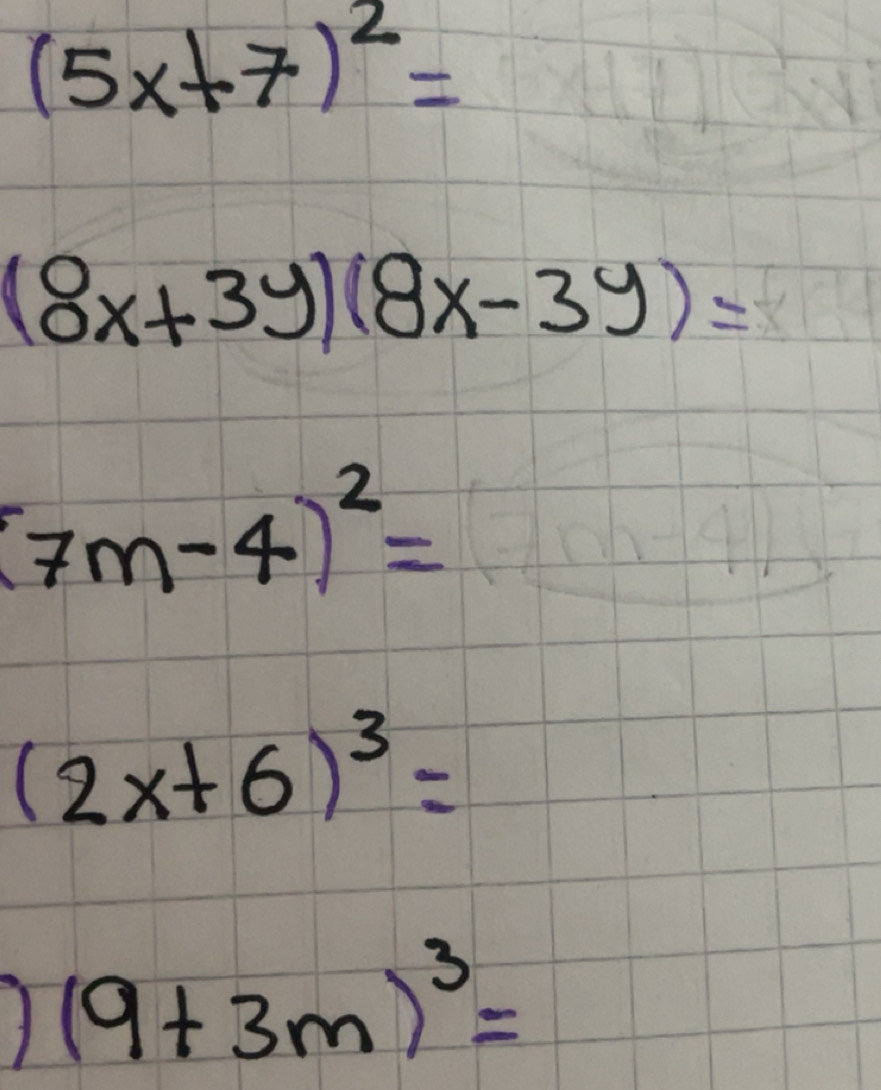 (5x+7)² =
(8x+3y)(8x-3y) =
(7m-4)² = (7m-4)
(2x+6)³ =
)(9+3m)³ =